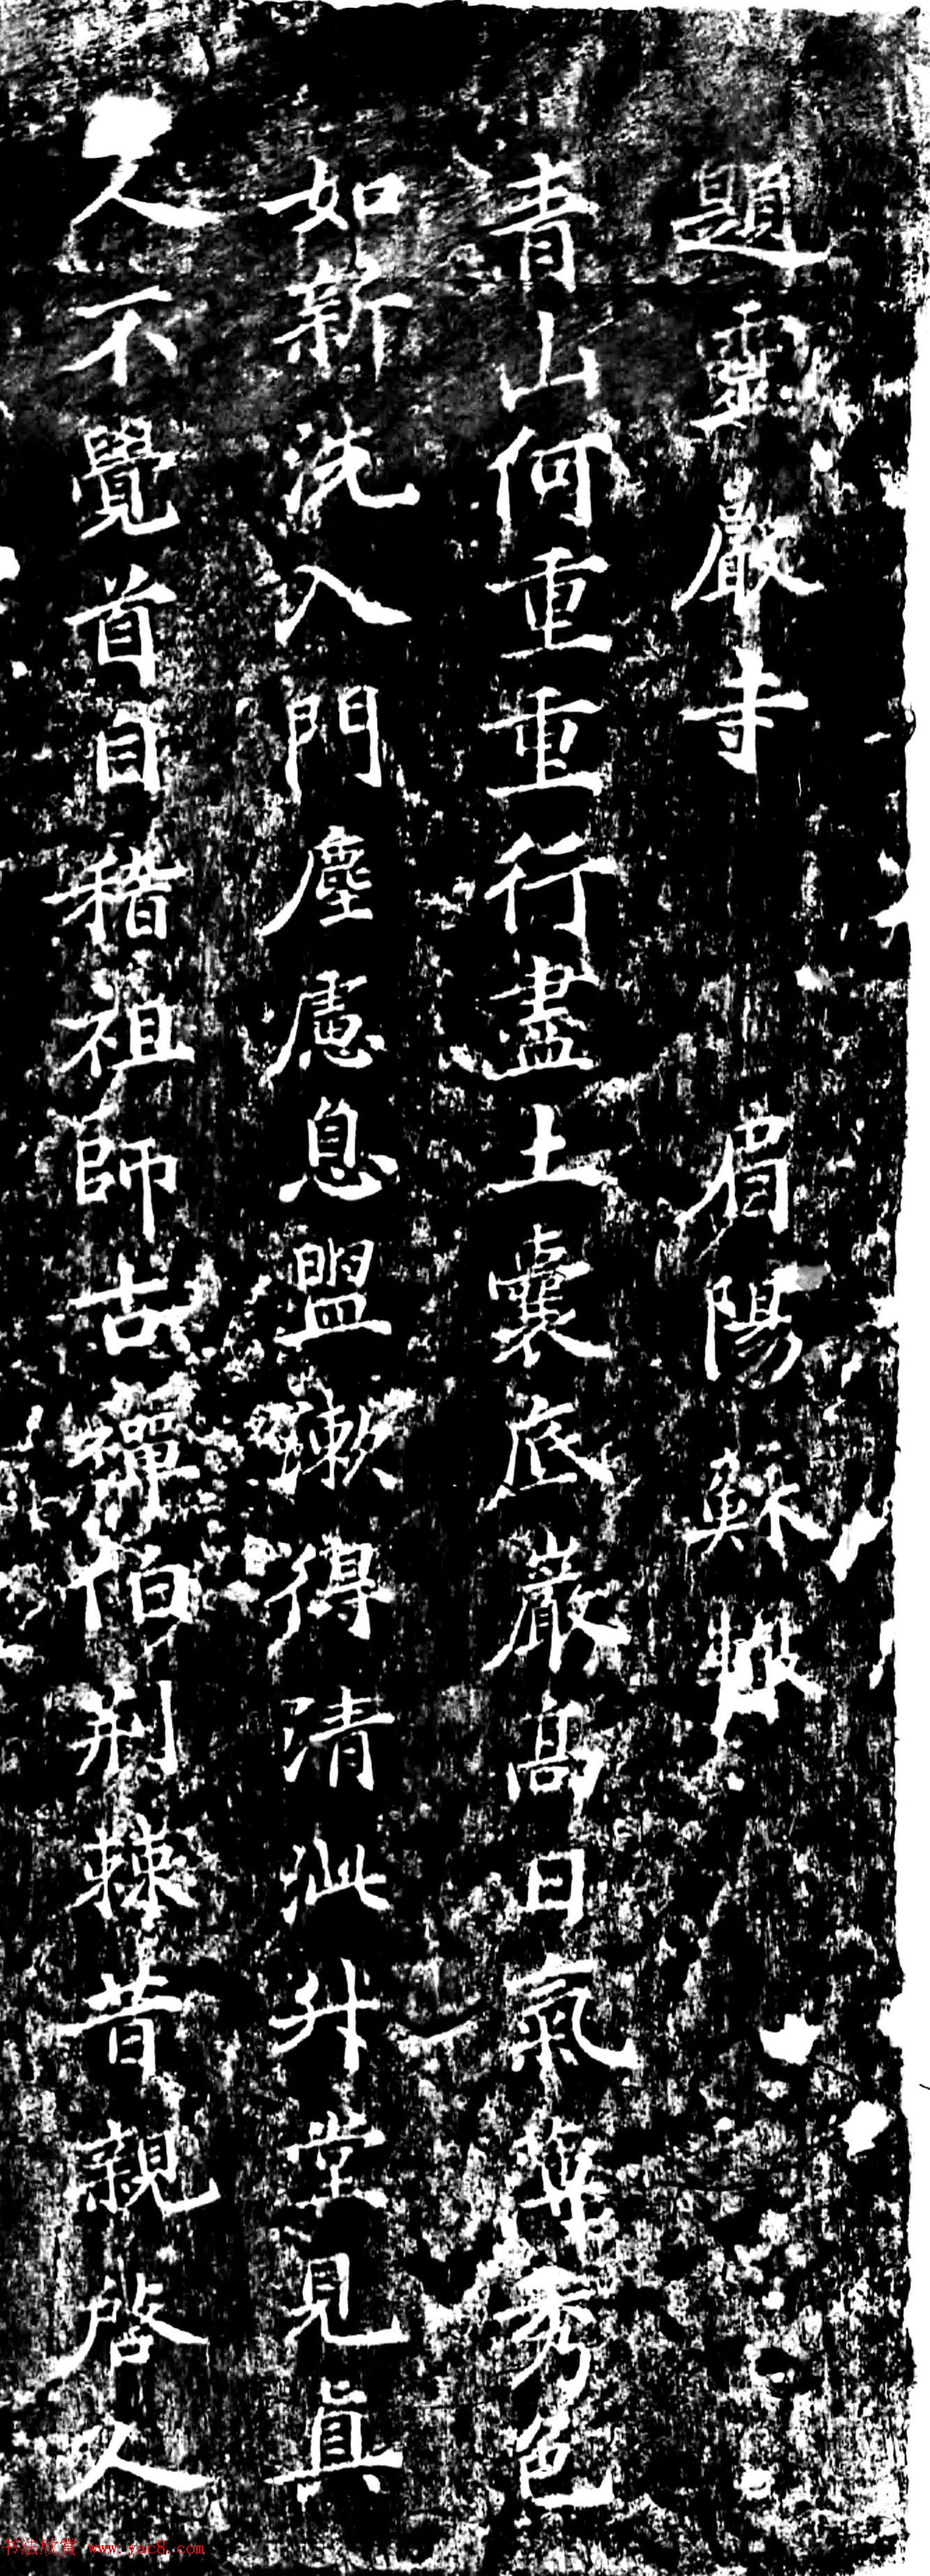 題靈巖寺 眉陽蘇轍
青山何重重行盡土囊底巖高日氣薄秀色
如新洗入門塵慮息盥漱得清泚升堂見真
人不覺首自稽祖師古禪伯荆棘昔親啓人
书法欣赏 www.yac8.com